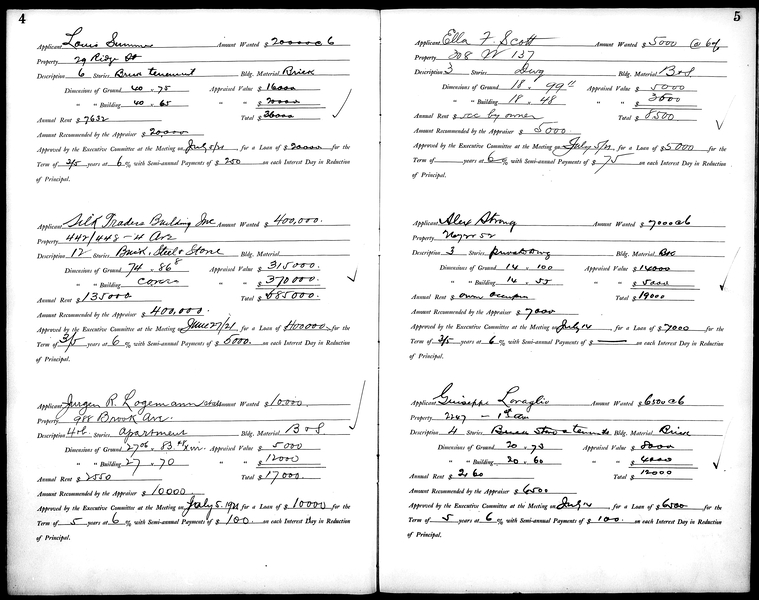 4
Applicant Louis Summer Amount Wanted $ 20000 @ 6
Property 29 Ridge St
Description 6 Stories Brick tenement Bldg. Material Brick
Dimensions of Ground 40 x 75 Appraised Value $ 16000
" " Building 40 x 65 " " $ 20000
Annual Rent $ 7632 Total $ 36000
Amount Recommended by the Appraiser $ 20000
Approved by the Executive Committee at the Meeting on July 5/21 for a Loan of $ 20000 for the
Term of 3/5 years at 6 % with Semi-annual Payments of $ 250 on each Interest Day in Reduction
of Principal.
Applicant Silk Traders Building Inc Amount Wanted $ 400,000.
Property 442/448 - 4 Ave
Description 12 Stories Brick, Steel & Stone Bldg. Material
Dimensions of Ground 74 x 86 8 Appraised Value $ 315000.
" " Building Covers " " $ 370000.
Annual Rent $ 135000 Total $ 685000.
Amount Recommended by the Appraiser $ 400000.
Approved by the Executive Committee at the Meeting on June 27/21 for a Loan of $ 400000. for the
Term of 3/5 years at 6 % with Semi-annual Payments of $ 5000. on each Interest Day in Reduction
of Principal.
Applicant Jurgen R. Logemann Amount Wanted $ 10,000.
Property 988 Brook Ave.
Description Stories apartment Bldg. Material B & S
Dimensions of Ground Appraised Value $ 5000
" " Building 27 x 70 " " $ 12000
Annual Rent $ 2550 Total $ 17000.
Amount Recommended by the Appraiser $ 10000.
Approved by the Executive Committee at the Meeting on July 5. 1921 for a Loan of $ 10000 for the
Term of 5 years at 6 % with Semi-annual Payments of $ 100. on each Interest Day in Reduction
of Principal.
5
Applicant Ella F. Scott Amount Wanted $ 5000 @ 6%
Property 308 W 137
Description 3 Stories Dwg Bldg. Material B & S
Dimensions of Ground 18 x 99 11 Appraised Value $ 5000
" " Building 18 x 48 " " $ 3500
Annual Rent $ occ by owner Total $ 8500
Amount Recommended by the Appraiser $ 5000
Approved by the Executive Committee at the Meeting on July 5/21 for a Loan of $ 5000 for the
Term of years at 6 % with Semi-annual Payments of $ 75 on each Interest Day in Reduction
of Principal.
Applicant Alex Strong Amount Wanted $ 7000 @ 6
Property 52
Description 3 Stories Bldg. Material
Dimensions of Ground 14 x 100 Appraised Value $ 14000
" " Building 14 x 55 " " $ 5000
Annual Rent $ owner Total $ 19000
Amount Recommended by the Appraiser $ 7000
Approved by the Executive Committee at the Meeting on July 14 for a Loan of $ 7000 for the
Term of 3/5 years at 6 % with Semi-annual Payments of $ — on each Interest Day in Reduction
of Principal.
Applicant Guiseppe Loraglio Amount Wanted $ 6500 @ 6
Property 2247 - 1st Ave
Description 4 Stories Bldg. Material Brick
Dimensions of Ground 20 x 75 Appraised Value $ 8000
" " Building 20 x 60 " " $ 4000
Annual Rent $ 2160 Total $ 12000
Amount Recommended by the Appraiser $ 6500
Approved by the Executive Committee at the Meeting on July 14 for a Loan of $ 6500 for the
Term of 5 years at 6 % with Semi-annual Payments of $ 100. on each Interest Day in Reduction
of Principal.